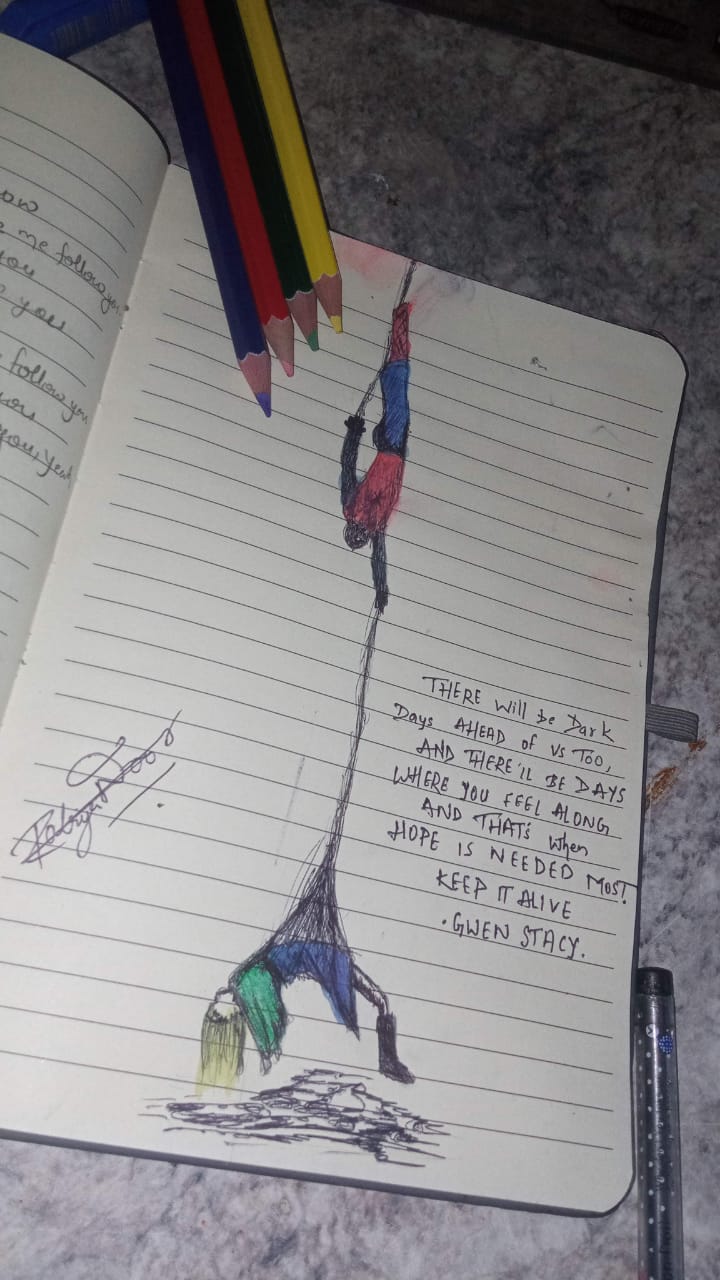 ow
me follow you
you
you
follow you
you
you, yeah
THERE Will be Dark
Days AHEAD of US Too,
AND THERE'll BE DAYS
WHERE YOU FEEL ALONG
AND THAT'S When
HOPE IS NEEDED MOST
KEEP IT ALIVE
.GWEN STACY.